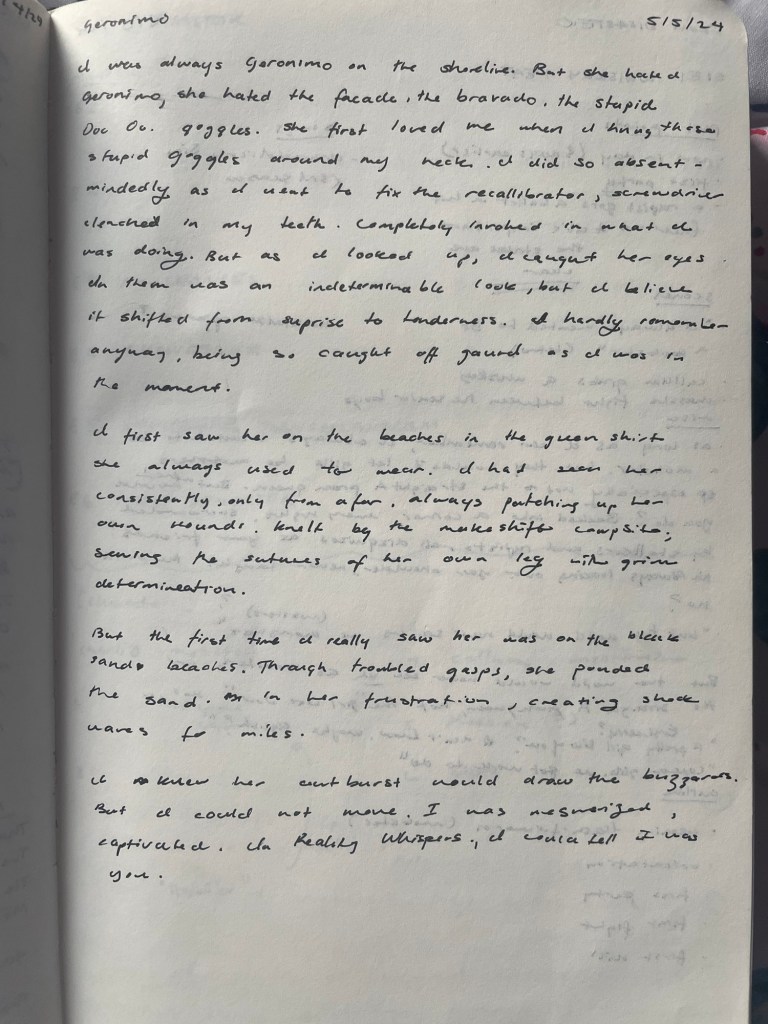 Geronimo 5/5/24
I was always Geronimo on the shoreline. But she hated
Geronimo, she hated the facade, the bravado, the stupid
Doc Oc. goggles. She first loved me when I hung those
stupid goggles around my neck. I did so absent-
mindedly as I went to fix the recallibrator, screwdriver
clenched in my teeth. Completely involved in what I
was doing. But as I looked up, I caught her eyes.
In them was an indeterminable look, but I believe
it shifted from suprise to tenderness. I hardly remember
anyway, being so caught off gaurd as I was in
the moment.
I first saw her on the beaches in the green shirt
she always used to wear. I had seen her
consistently, only from afar, always patching up her
own wounds. Knelt by the makeshift campsite,
sewing the sutures of her own leg with grim
determineation.
But the first time I really saw her was on the black
sand beaches. Through troubled gasps, she pounded
the sand. in her frustration, creating shock
waves for miles.
I knew her outburst would draw the buzzards.
But I could not move. I was mesmerized,
captivated. In Reality Whispers, I could tell I was
you.